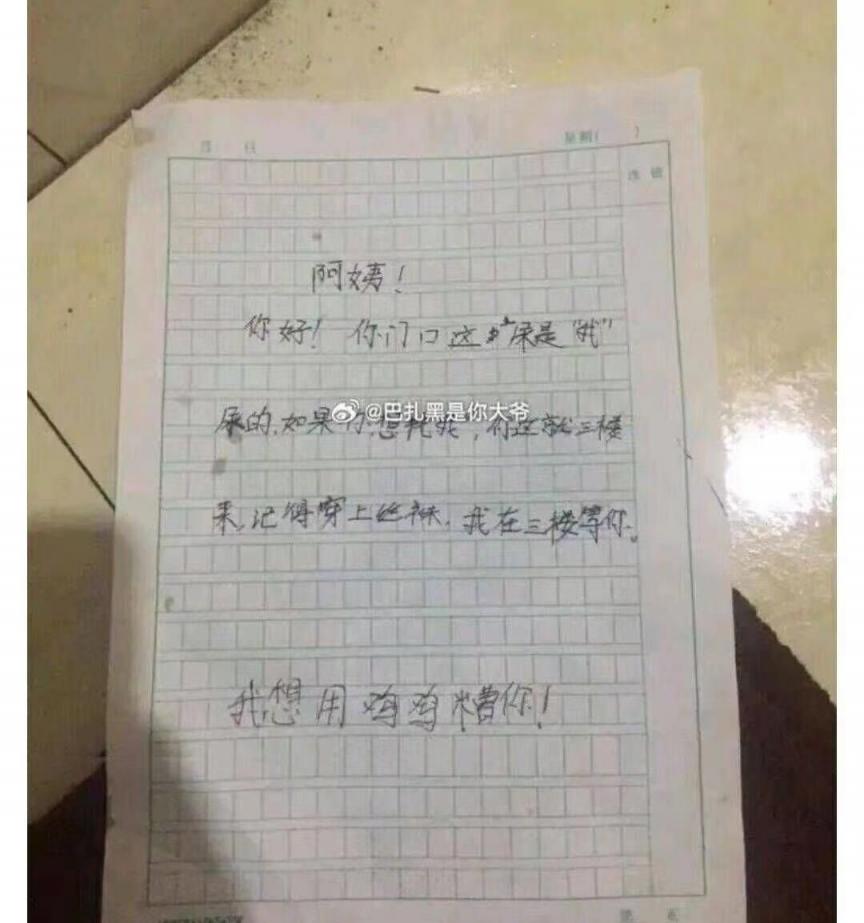 星期( )
阿姨！
你好！你门口这尿是"我"
@巴扎黑是你大爷
尿的,如果你想我,你这就三楼
来,记得穿上丝袜,我在三楼等你。
我想用鸡鸡糟你！